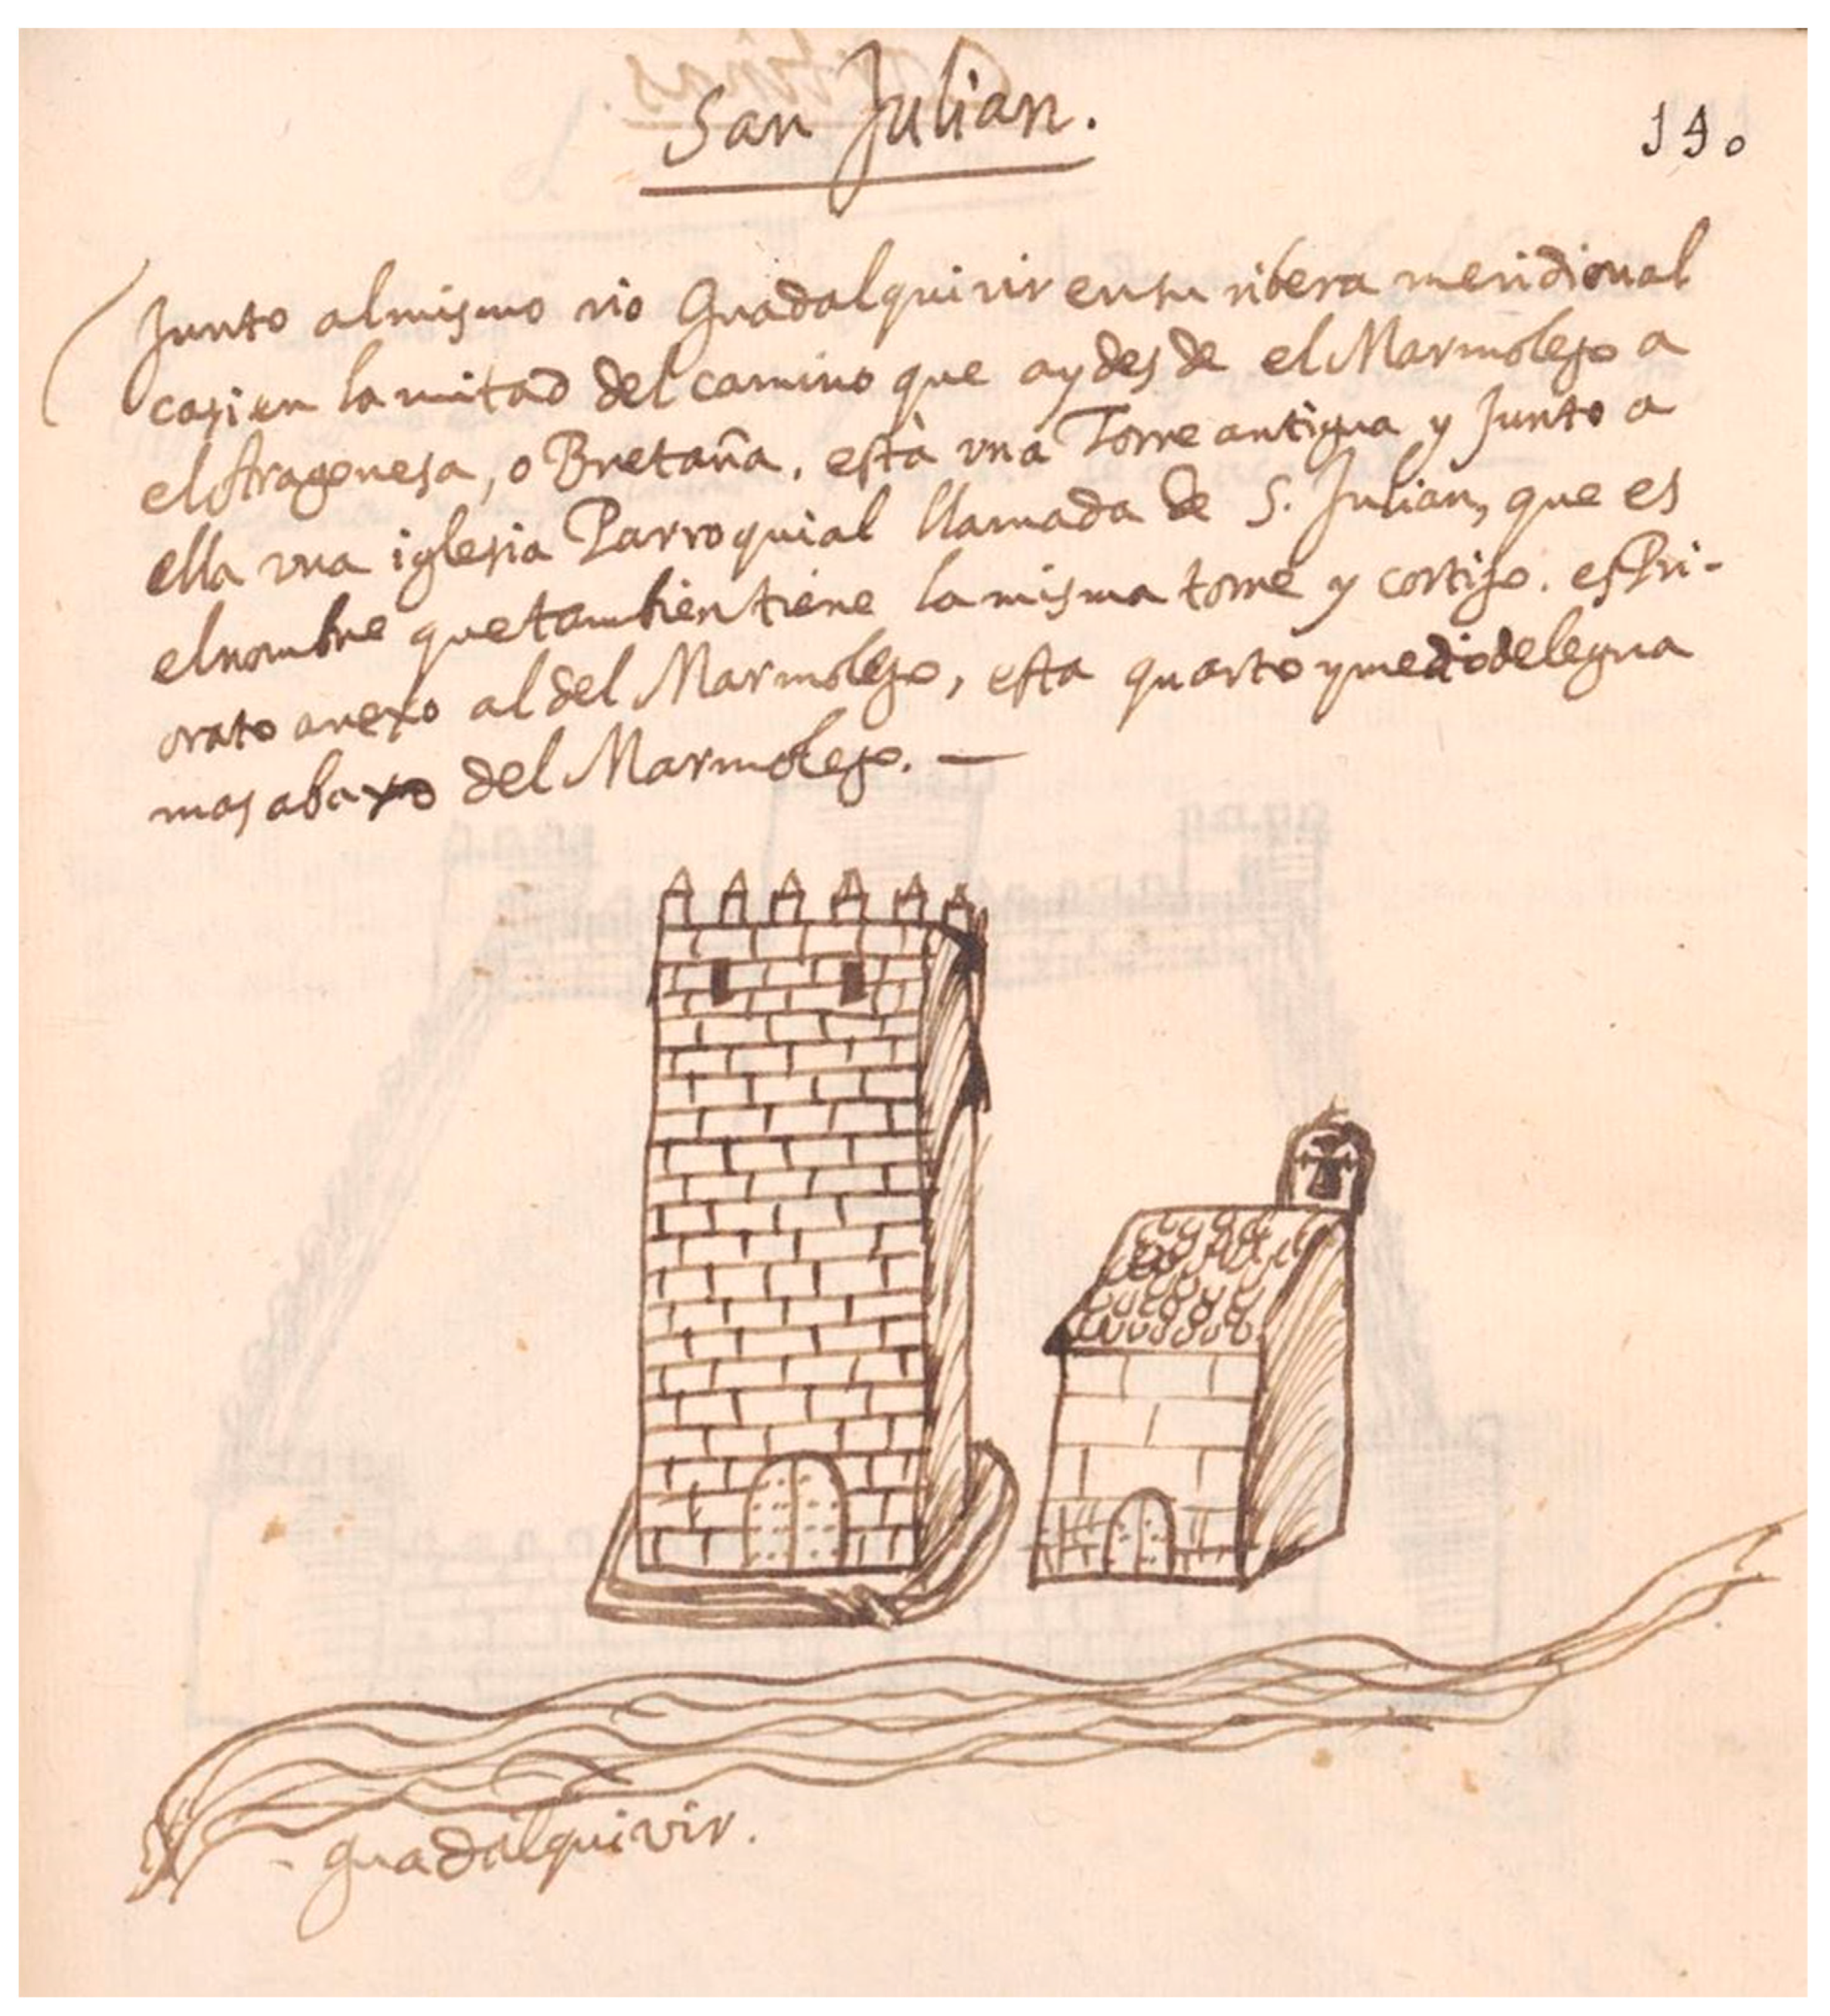 San Julian.
190
Junto almismo rio Guadalquivir ensu ribera meridional
casi en la mitad del camino que ay desde el Marmolejo a
el Aragonesa, o Bretaña, està vna Torre antigua y Junto a
ella vna iglesia Parroquial llamada de S. Julian, que es
elnombre que tambien tiene la misma torre y cortijo. es Pri-
orato anexo al del Marmolejo, esta quarto y medio de legua
mas abaxo del Marmolejo. —
guadalquivir.